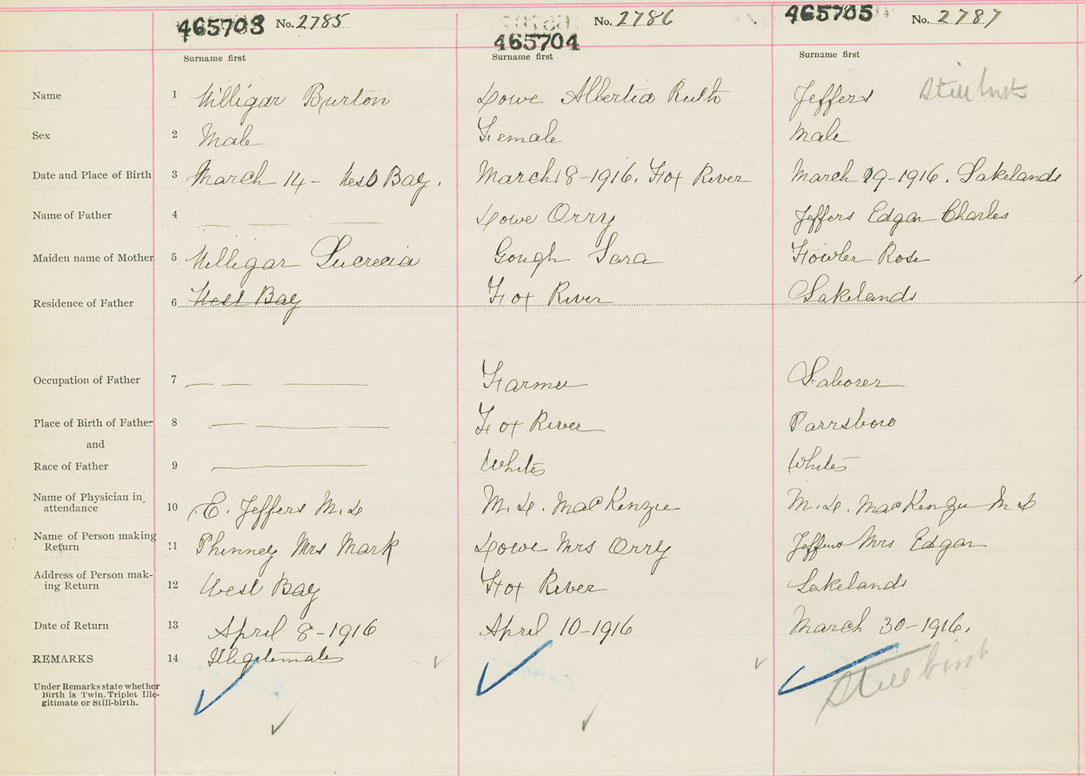 465703 No. 2785 465704 No. 2786 465705 No. 2787
Surname first Surname first Surname first
Name 1 Milligar Burton Dowe Albertia Ruth Jeffers Still birth
Sex 2 Male Female Male
Date and Place of Birth 3 March 14 - West Bay. March 18-1916. Fox River March 29-1916. Lakelands
Name of Father 4 — — Dowe Orry Jeffers Edgar Charles
Maiden name of Mother 5 Milligar Lucrecia Gough Sara Fowler Rose
Residence of Father 6 West Bay Fox River Lakelands
Occupation of Father 7 — — — Farmer Laborer
Place of Birth of Father 8 — — — Fox River Parrsboro
and
Race of Father 9 — White White
Name of Physician in attendance 10 E. Jeffers M.D M.D. MacKenzie M.D. MacKenzie M D
Name of Person making Return 11 Phinney Mrs Mark Dowe Mrs Orry Jeffers Mrs Edgar
Address of Person mak-ing Return 12 West Bay Fox River Lakelands
Date of Return 13 April 8-1916 April 10-1916 March 30-1916.
REMARKS 14 Illegitimate Still birth
Under Remarks state whether
Birth is Twin, Triplet Ille-
gitimate or Still-birth.